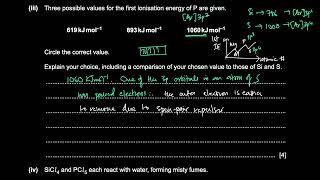 (iii) Three possible values for the first ionisation energy of P are given.
619 kJ mol⁻¹ 893 kJ mol⁻¹ 1060 kJ mol⁻¹
Circle the correct value.
Explain your choice, including a comparison of your chosen value to those of Si and S.
1060 kJ mol⁻¹. One of the 3p orbitals in an atom of S
has paired electrons. the outer electron is easier
to remove due to spin-pair repulsion
[4]
(iv) SiCl₄ and PCl₅ each react with water, forming misty fumes.